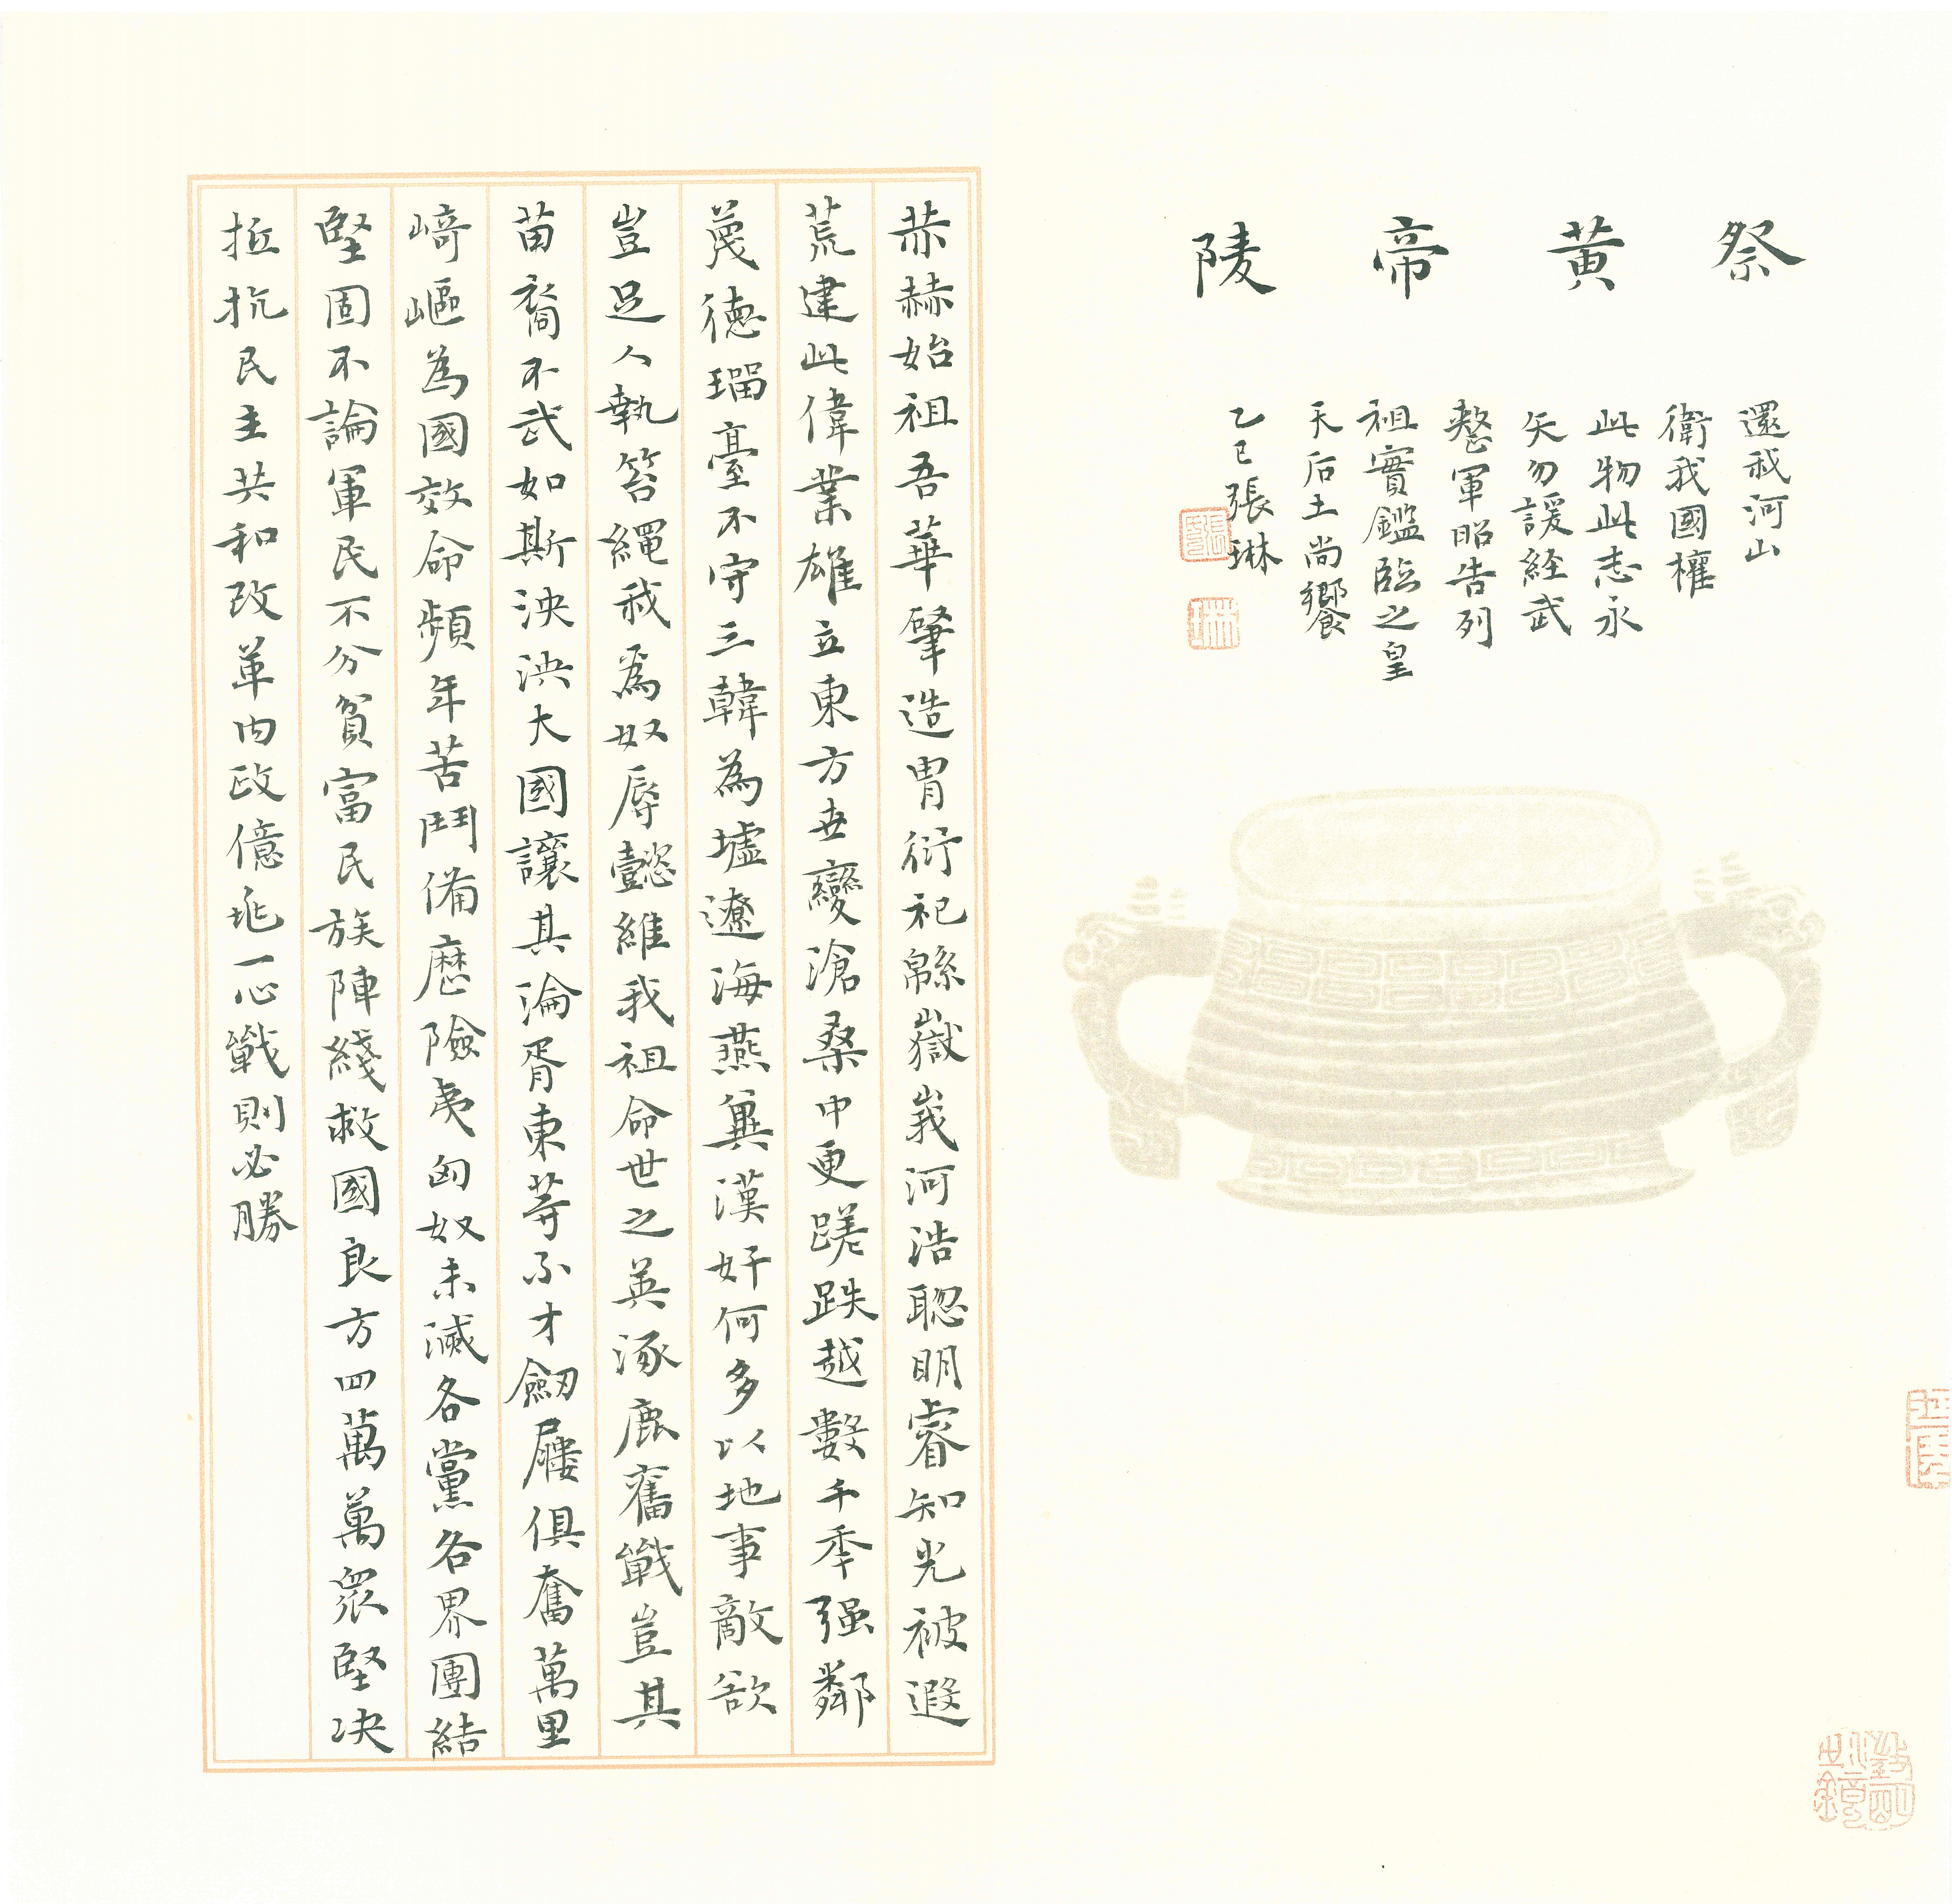 祭黄帝陵
赫赫始祖吾華肇造胄衍祀緜嶽峩河浩聰明睿知光被遐
荒建此偉業雄立東方世變滄桑中更蹉跌越數千年强鄰
蔑德瑠臺不守三韓為墟遼海燕冀漢奸何多以地事敵欲
豈足人執笞繩我為奴辱懿維我祖命世之英涿鹿奮戰豈其
苗裔不武如斯泱泱大國讓其淪胥東等不才劒屨俱奮萬里
崎嶇為國效命頻年苦鬥備歷險夷匈奴未滅各黨各界團結
堅固不論軍民不分貧富民族陣綫救國良方四萬萬衆堅决
抵抗民主共和改革内政億兆一心戰則必勝
還我河山
衛我國權
此物此志永
矢勿諼経武
整軍昭告列
祖實鑑臨之皇
天后土尚饗
乙巳張琳